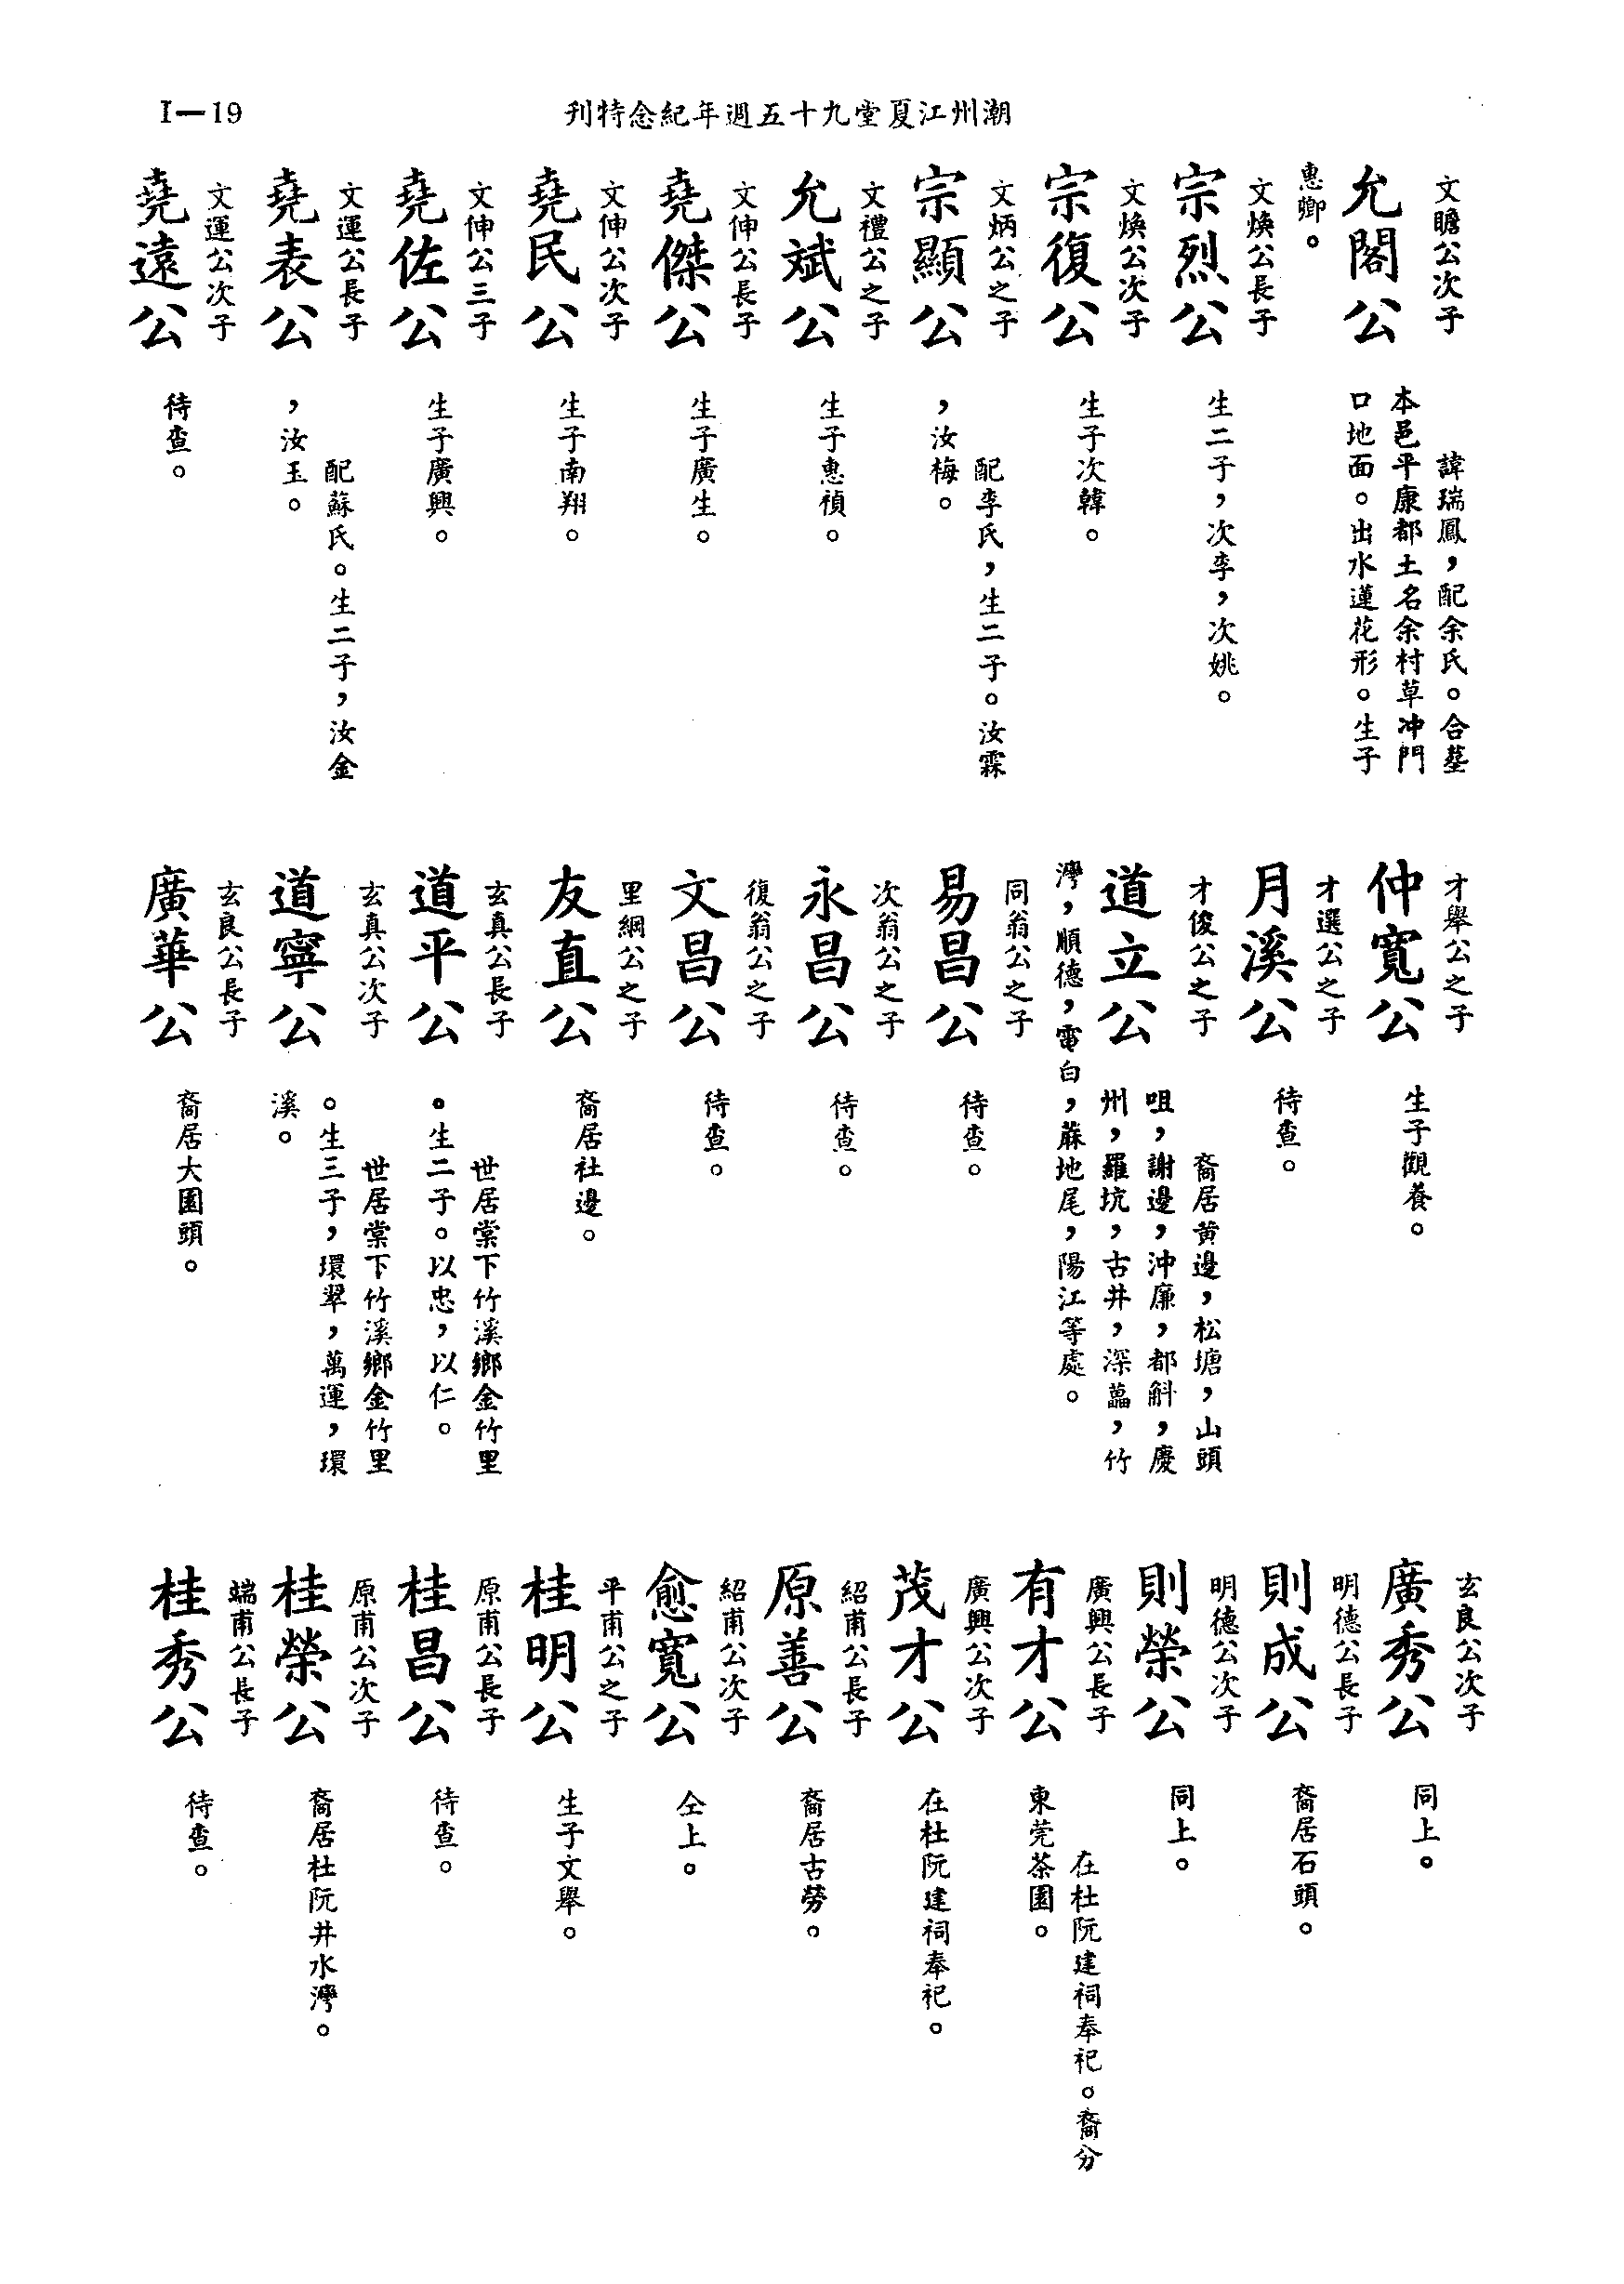 I—19
潮州江夏堂九十五週年紀念特刊
文瞻公次子
允閣公
諱瑞鳳，配余氏。合墓
本邑平康都土名余村草冲門
口地面。出水蓮花形。生子
惠卿。
文煥公長子
宗烈公
生二子，次李，次姚。
文煥公次子
宗復公
生子次韓。
文炳公之子
宗顯公
配李氏，生二子。汝霖
，汝梅。
文禮公之子
允斌公
生子惠禎。
文伸公長子
堯傑公
生子廣生。
文伸公次子
堯民公
生子南翔。
文伸公三子
堯佐公
生子廣興。
文運公長子
堯表公
配蘇氏。生二子，汝金
，汝玉。
文運公次子
堯遠公
待查。
才舉公之子
仲寬公
生子觀養。
才選公之子
月溪公
待查。
才俊公之子
道立公
裔居黄邊，松塘，山頭
咀，謝邊，沖廉，都斛，慶
州，羅坑，古井，深藟，竹
灣，順德，電白，蔴地尾，陽江等處。
同翁公之子
易昌公
待查。
次翁公之子
永昌公
待查。
復翁公之子
文昌公
待查。
里綱公之子
友直公
裔居社邊。
玄真公長子
道平公
世居棠下竹溪鄉金竹里
。生二子。以忠，以仁。
玄真公次子
道寧公
世居棠下竹溪鄉金竹里
。生三子，環翠，萬運，環
溪。
玄良公長子
廣華公
裔居大園頭。
玄良公次子
廣秀公
同上。
明德公長子
則成公
裔居石頭。
明德公次子
則榮公
同上。
廣興公長子
有才公
在杜阮建祠奉祀。裔分
東莞茶園。
廣興公次子
茂才公
在杜阮建祠奉祀。
紹甫公長子
原善公
裔居古勞。
紹甫公次子
愈寬公
仝上。
平甫公之子
桂明公
生子文舉。
原甫公長子
桂昌公
待查。
原甫公次子
桂榮公
裔居杜阮井水灣。
端甫公長子
桂秀公
待查。